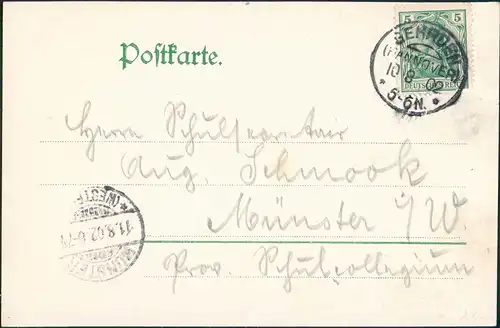 5 5
DEUTSCHES REICH
GEHRDEN
(HANNOVER)
10 8 02
* 5-6N. *
Postkarte.
Herrn Schulsecretair
Aug. Schmook
Münster i/W.
Prov. Schulcollegium
MÜNSTER
11.8.02.
* (WESTF.)